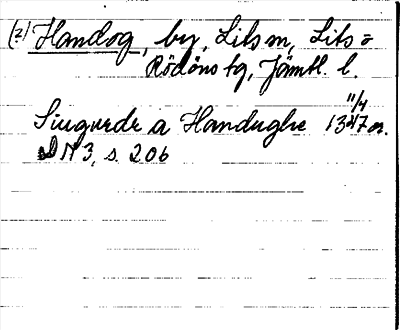 (2) Handog, by, Lits sn, Lits o
Rödöns tg, Jämtl. l.
Siugurdr a Handughe 11/4 1347 or.
DN 3, s. 206